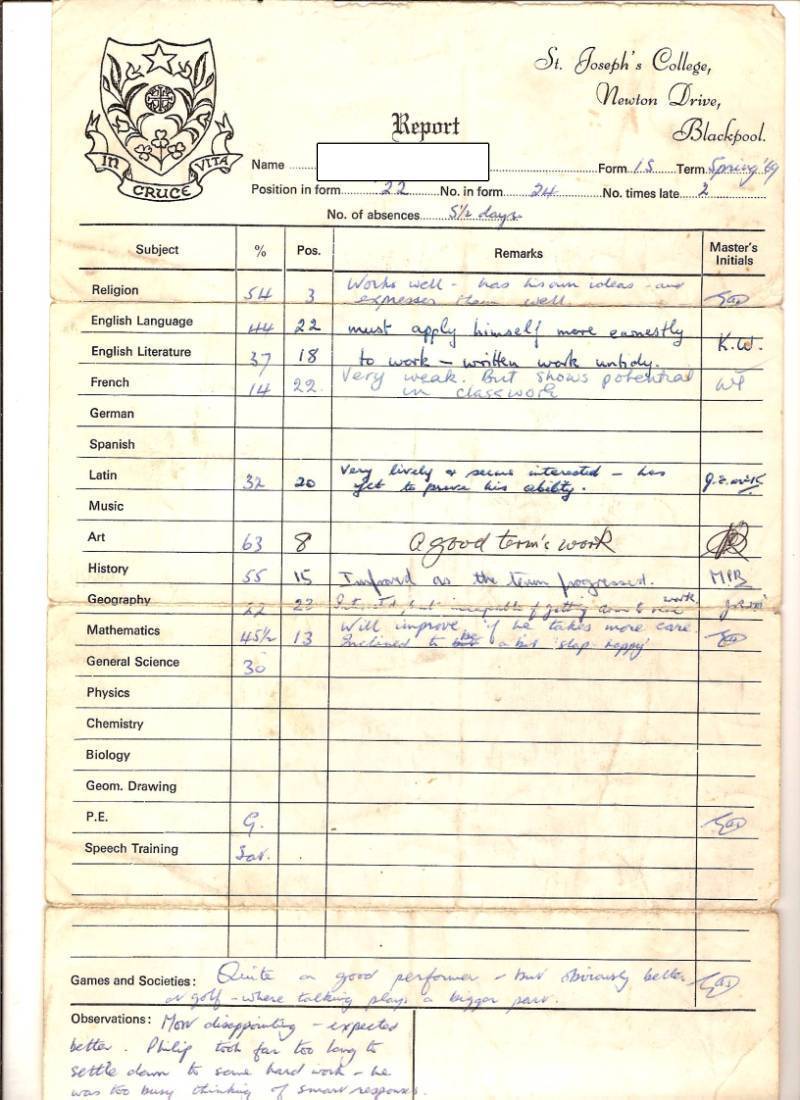 St. Joseph's College,
Newton Drive,
Blackpool.
IN CRUCE VITA
Report
Name Form 1S Term Spring '69
Position in form 22 No. in form 24 No. times late 2
No. of absences 5½ days
Subject % Pos. Remarks Master's Initials
Religion 54 3 Works well - has his own ideas - and
expresses them well
English Language 44 22 must apply himself more earnestly K.W.
English Literature 37 18 to work - written work untidy.
French 14 22 Very weak. But shows potential
in classwork
German
Spanish
Latin 32 20 Very lively & seems interested - has
yet to prove his ability.
Music
Art 63 8 A good term's work
History 55 15 Improved as the term progressed. MPB
Geography 22 23 but incapable of getting down to work
Mathematics 45½ 13 Will improve if he takes more care
Inclined to be a bit 'slap happy'
General Science 30
Physics
Chemistry
Biology
Geom. Drawing
P.E. G.
Speech Training Sat.
Games and Societies: Quite a good performer - but obviously better
at golf - where talking plays a bigger part.
Observations: Most disappointing - expected
better. Philip took far too long to
settle down to some hard work - he
was too busy thinking of smart responses.